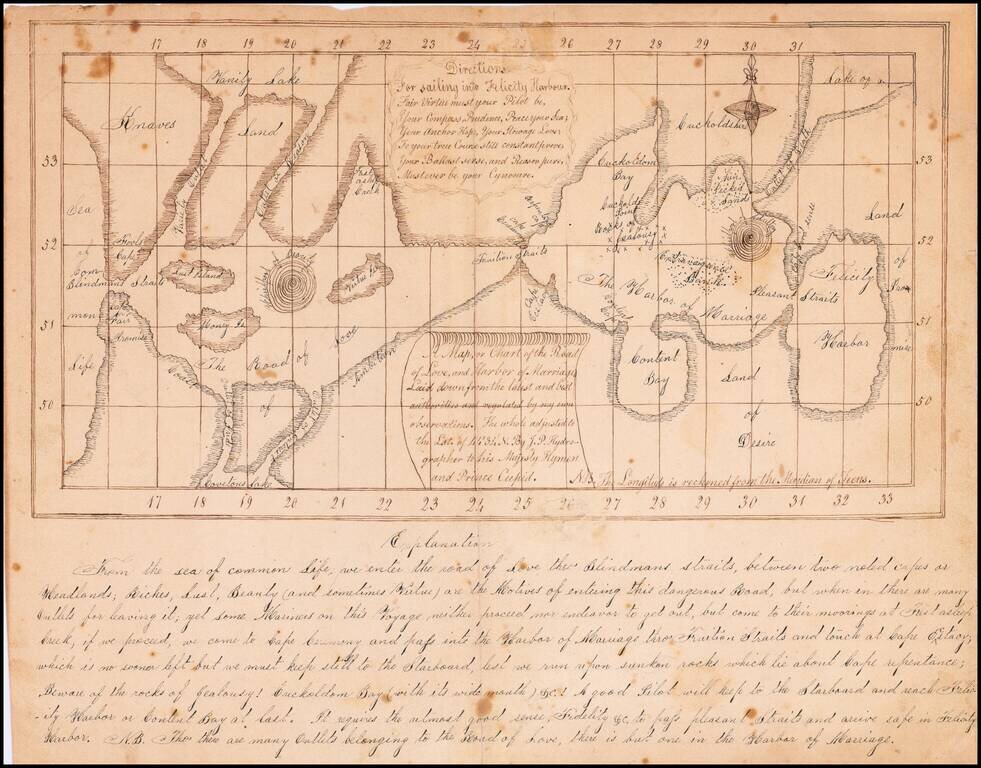 17 18 19 20 21 22 23 24 25 26 27 28 29 30 31
Vanity Lake
Knaves
Land
Directions
For sailing into Felicity Harbour.
Fair Virtue must your Pilot be,
Your Compass Prudence, Peace your Sea;
Your Anchor Hope, Your Stowage Love;
To your true Course still constant prove,
Your Ballast sense, and Reason pure,
Must ever be your Cynosure.
Lake of
Cuckoldshire
53
53
Cuckoldom
Bay
Fast
asleep
Creek
Sea
of
Com
mon
Life
Fools
Cape
Blindmans Straits
Lust Island
Money Is
Cape
Fair
Promise
The Road of Love
Cuckolds
Point
Rocks of
Jealousy
Cape
Fruition Straits
Cape
52
52
The Harbor of Marriage
Pleasant Straits
Felicity
Harbor
Land
of
Prom
mise
51
51
Content
Bay
Land
of
Desire
50
50
of
A Map, or Chart of the Road
of Love, and Harbor of Marriage
Laid down from the latest and best
authorities and regulated by my own
observations. The whole adjusted to
the Lat. of N. By J. P. Hydro-
grapher to his Majesty Hymen
and Prince Cupid.
Covetous Lake
N.B. The Longitude is reckoned from the Meridian of Teens.
17 18 19 20 21 22 23 24 25 26 27 28 29 30 31 32 33
Explanation
From the sea of common life, we enter the road of Love thro Blindmans straits, between two noted capes or
Headlands; Riches, Lust, Beauty (and sometimes Virtue) are the Motives of entering this dangerous Road, but when in there are many
Outlets for leaving it; yet some Mariners on this Voyage neither proceed nor endeavor to get out, but come to their moorings at Fast asleep
Creek, if we proceed, we come to Cape Ceremony and pass into the Harbor of Marriage thro' Fruition Straits and touch at Cape Extacy;
which is no sooner left but we must keep still to the Starboard, lest we run upon sunken rocks which lie about Cape repentance;
Beware of the rocks of Jealousy! Cuckoldom Bay (with its wide mouth) &c! A good Pilot will keep to the Starboard and reach Felic-
-ity Harbor or Content Bay at Last. It requires the utmost good sense, Fidelity &c, to pass pleasant Straits and arrive safe in Felicity
Harbor. N.B. Tho' there are many Outlets belonging to the Road of Love, there is but one in the Harbor of Marriage.